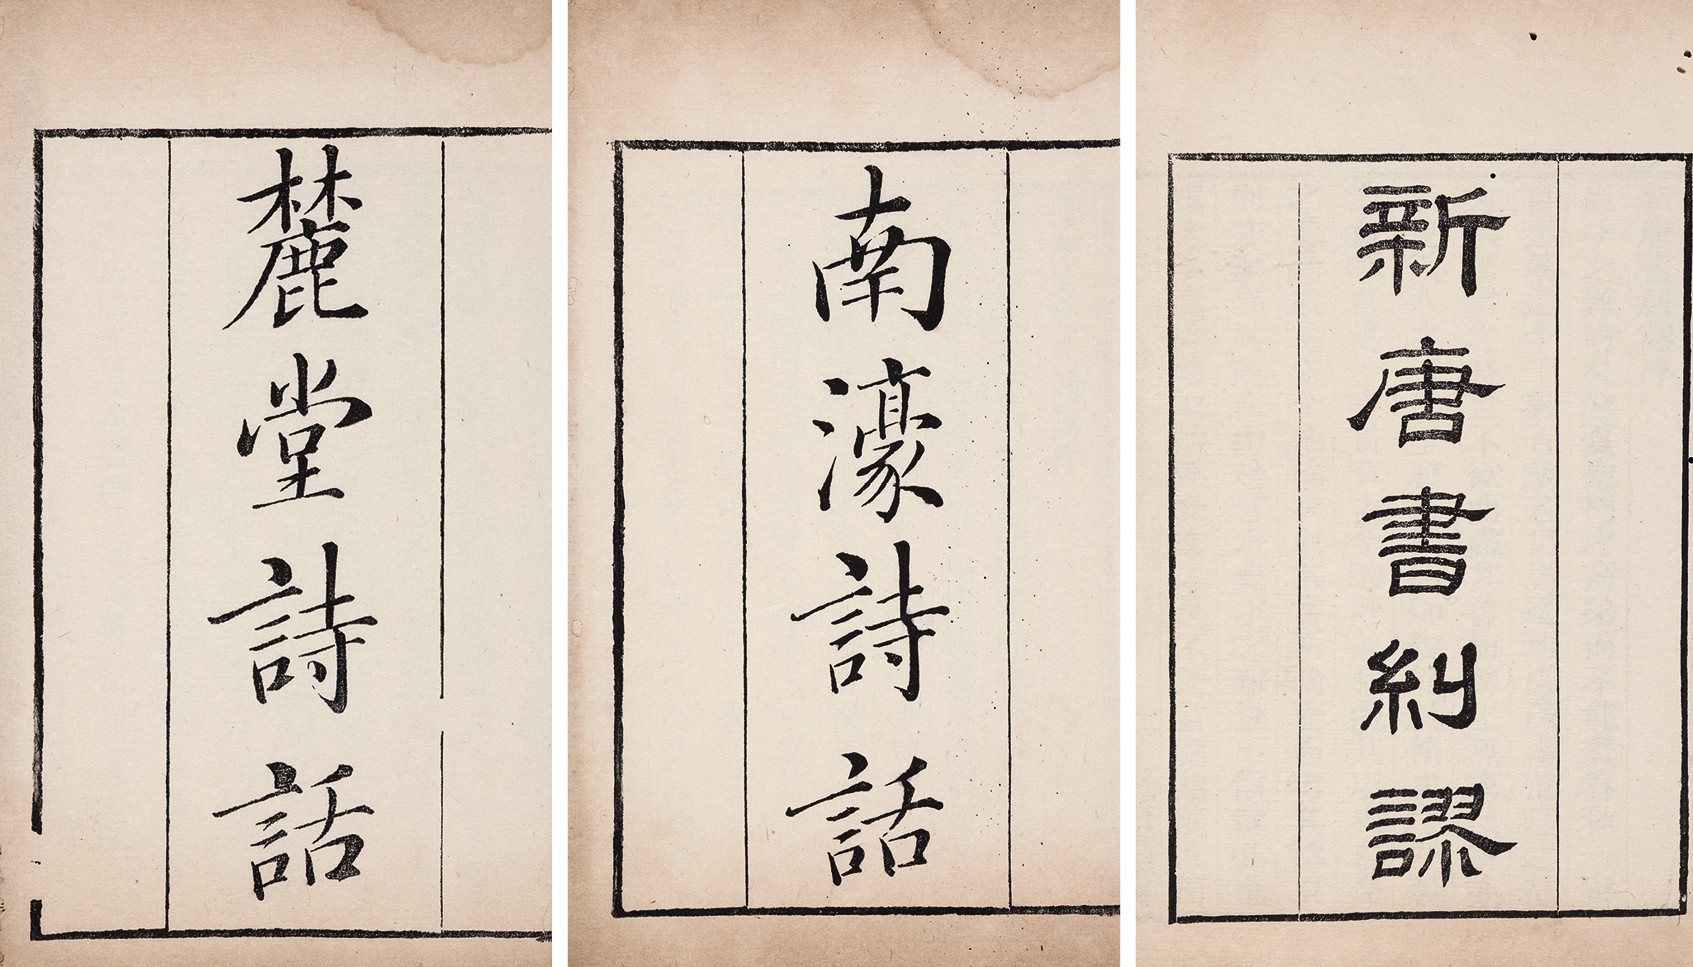 麓堂詩話
南濠詩話
新唐書糾謬